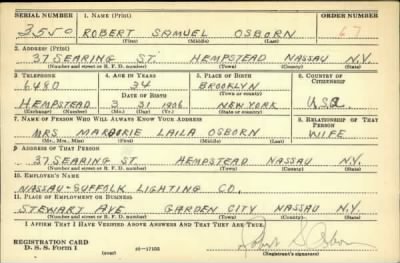 SERIAL NUMBER 1. NAME (Print) ORDER NUMBER
3550 ROBERT SAMUEL OSBORN 67
(First) (Middle) (Last)
2. ADDRESS (Print)
37 SEARING ST. HEMPSTEAD NASSAU N.Y.
(Number and street or R. F. D. number) (Town) (County) (State)
3. TELEPHONE 4. AGE IN YEARS 5. PLACE OF BIRTH 6. COUNTRY OF CITIZENSHIP
6480 34 BROOKLYN
DATE OF BIRTH (Town or county)
HEMPSTEAD 3 31 1906 NEW YORK USA
(Exchange) (Number) (Mo.) (Day) (Yr.) (State or country)
7. NAME OF PERSON WHO WILL ALWAYS KNOW YOUR ADDRESS 8. RELATIONSHIP OF THAT PERSON
MRS MARJORIE LAILA OSBORN WIFE
(Mr., Mrs., Miss) (First) (Middle) (Last)
9. ADDRESS OF THAT PERSON
37 SEARING ST HEMPSTEAD NASSAU N.Y.
(Number and street or R. F. D. number) (Town) (County) (State)
10. EMPLOYER'S NAME
NASSAU-SUFFOLK LIGHTING CO.
11. PLACE OF EMPLOYMENT OR BUSINESS
STEWART AVE. GARDEN CITY NASSAU N.Y.
(Number and street or R. F. D. number) (Town) (County) (State)
I AFFIRM THAT I HAVE VERIFIED ABOVE ANSWERS AND THAT THEY ARE TRUE.
Robert S. Osborn
REGISTRATION CARD
D. S. S. Form 1 (over) 16-17105 (Registrant's signature)